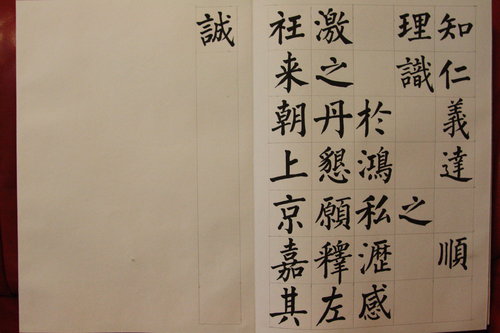 知仁義達　順
理識　　之
於鴻私瀝感
激之丹懇願釋左
衽来朝上京嘉其
誠